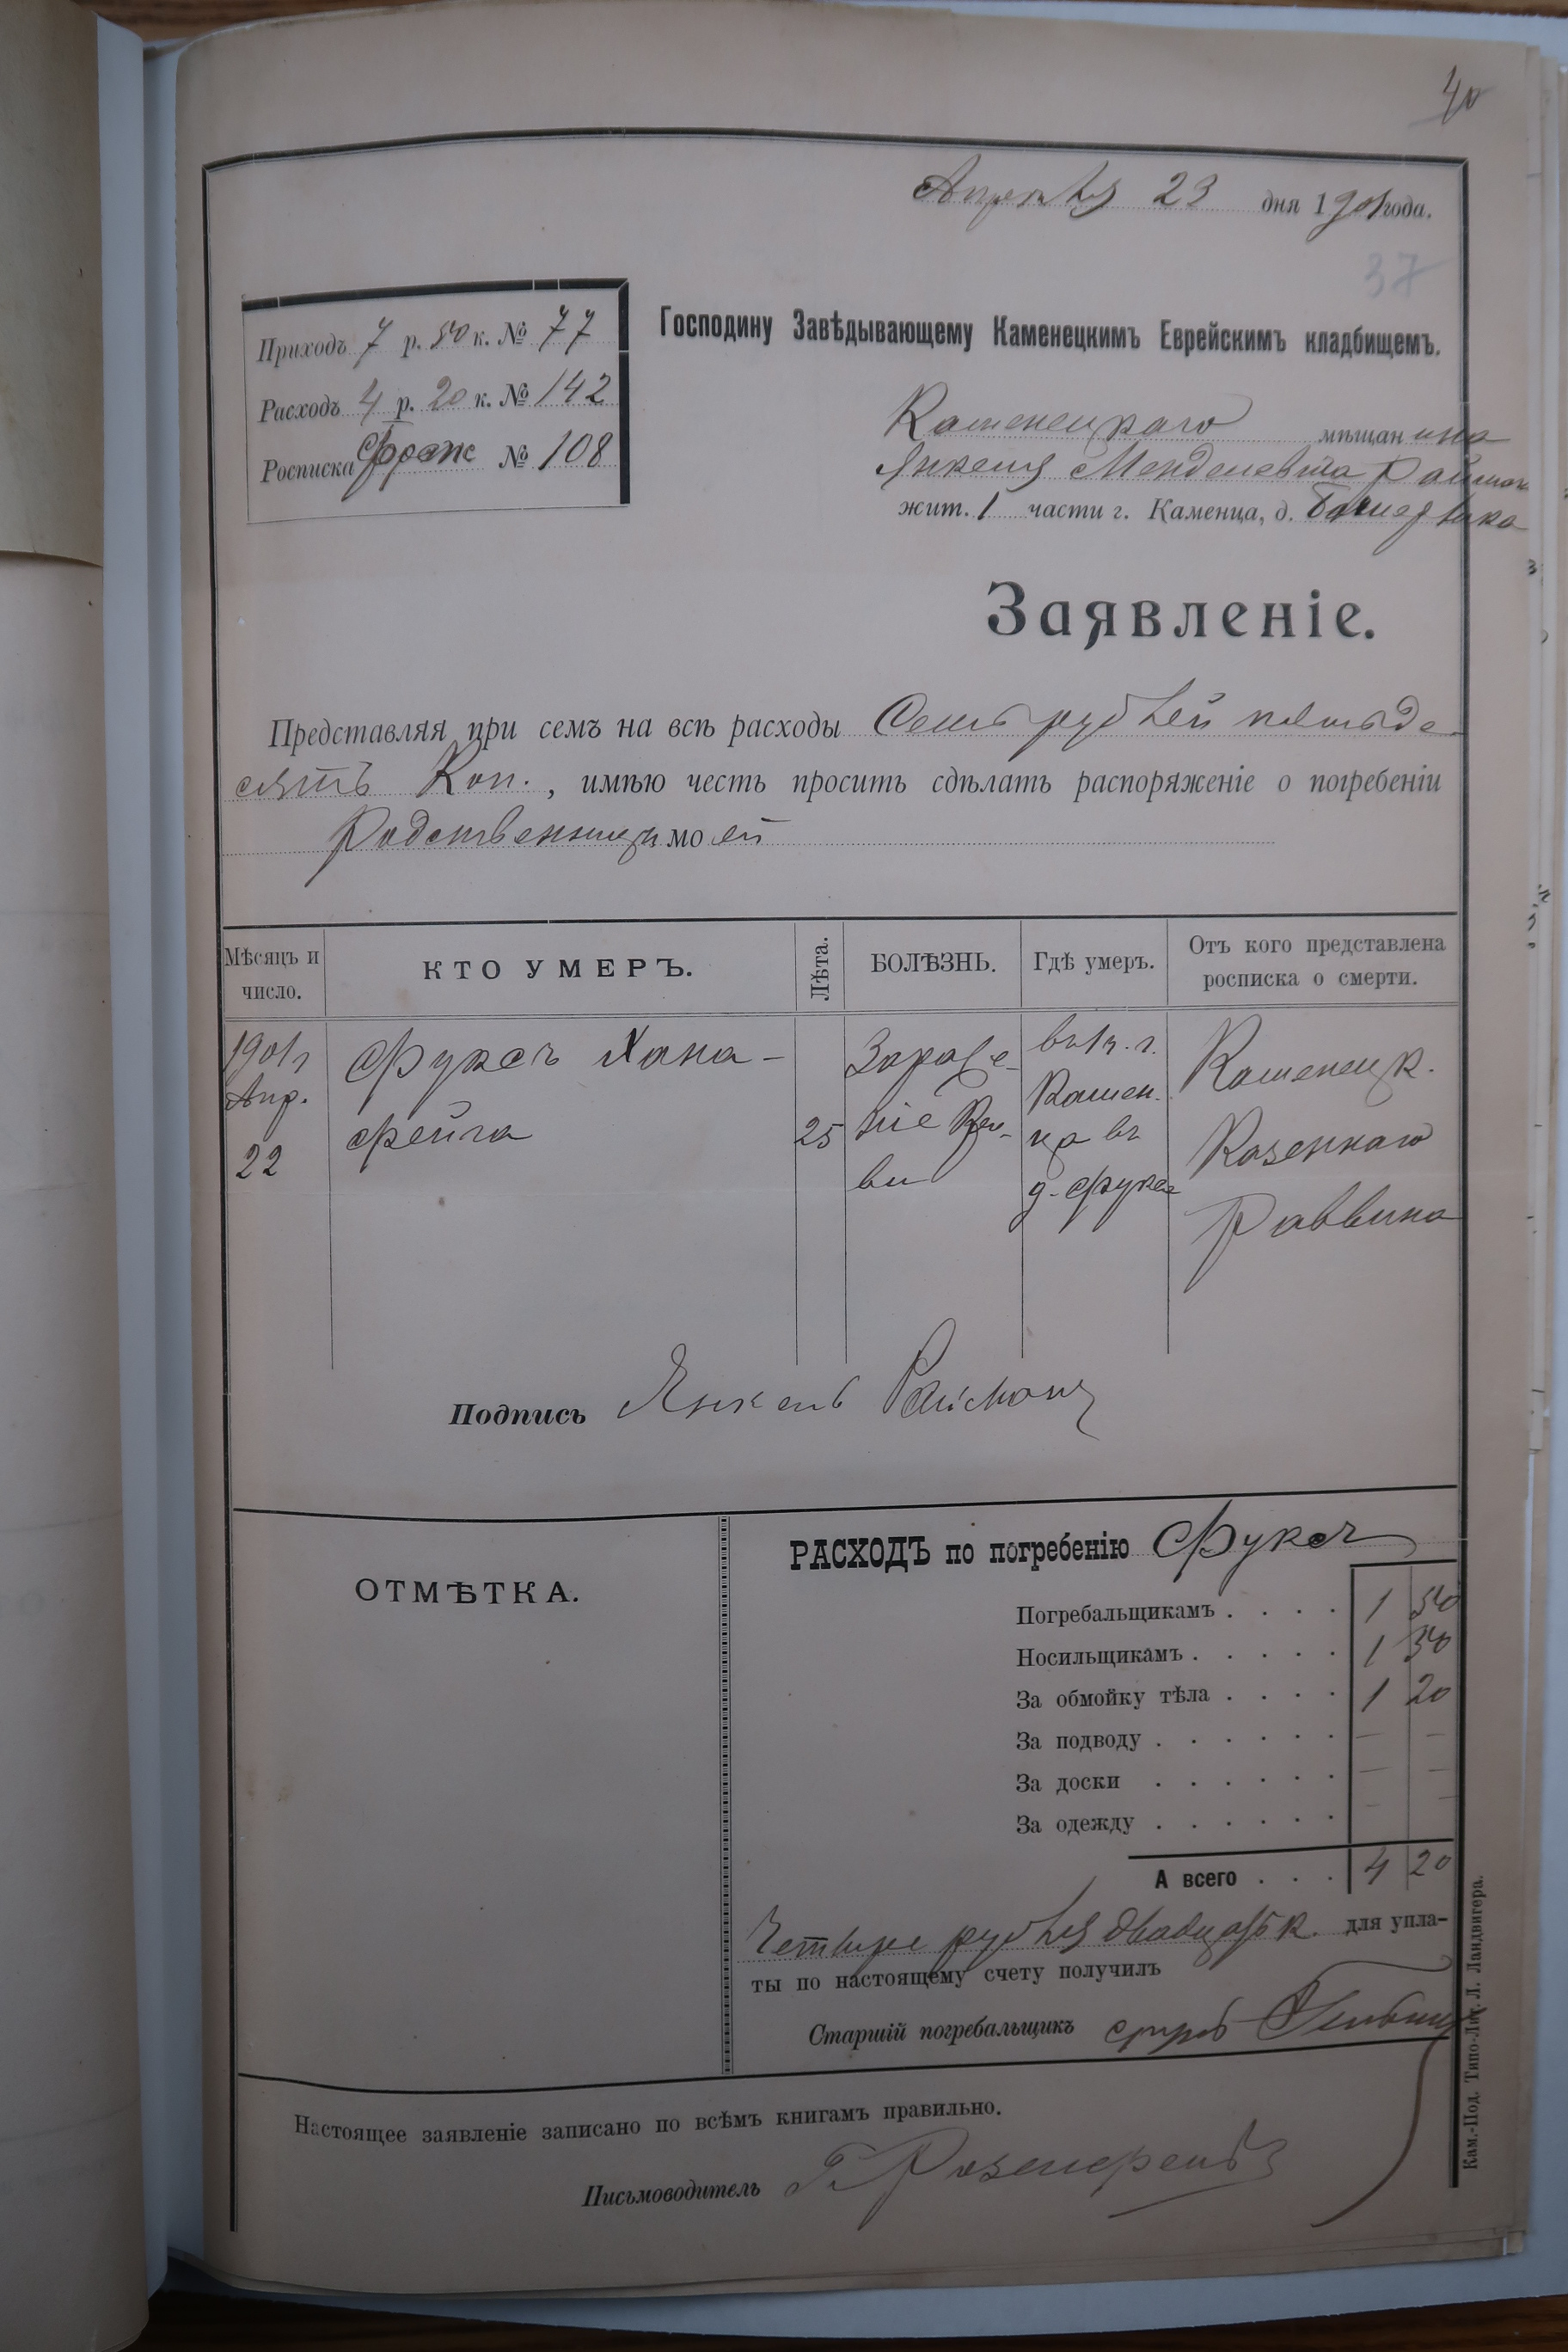 40
Апреля 23 дня 1901 года.
37
Приходъ 7 р. 50 к. № 77
Расходъ 4 р. 20 к. № 142
Росписка № 108
Господину Завѣдывающему Каменецкимъ Еврейскимъ кладбищемъ.
Каменецкаго мѣщанина
Янкеля Менделевича Райман
жит. 1 части г. Каменца, д.
Заявленіе.
Представляя при семъ на всѣ расходы Семь рублей пятьде-
сятъ Коп., имѣю честь просить сдѣлать распоряженіе о погребеніи
Родственницы моей
Мѣсяцъ и число.
КТО УМЕРЪ.
Лѣта.
БОЛѢЗНЬ.
Гдѣ умеръ.
Отъ кого представлена росписка о смерти.
1901 г
Апр.
22
Фуксъ Хана-
Фейга
25
Зараже-
ніе Кро-
ви
въ 1 ч. г.
Камен-
ца въ
д. Фукса
Каменецк.
Казеннаго
Раввина
Подпись Янкель Райманъ
ОТМѢТКА.
РАСХОДЪ по погребенію Фуксъ
Погребальщикамъ . . . . 1 50
Носильщикамъ . . . . . 1 50
За обмойку тѣла . . . . 1 20
За подводу . . . . . . — —
За доски . . . . . . — —
За одежду . . . . . . — —
А всего . . . 4 20
Четыре рубля двадцать к. для упла-
ты по настоящему счету получилъ
Старшій погребальщикъ
Настоящее заявленіе записано по всѣмъ книгамъ правильно.
Письмоводитель Г. Розенфельдъ
Кам.-Под. Типо-Лит. Л. Ландвигера.